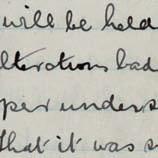 will be held
lterations bad
per unders
that it was s